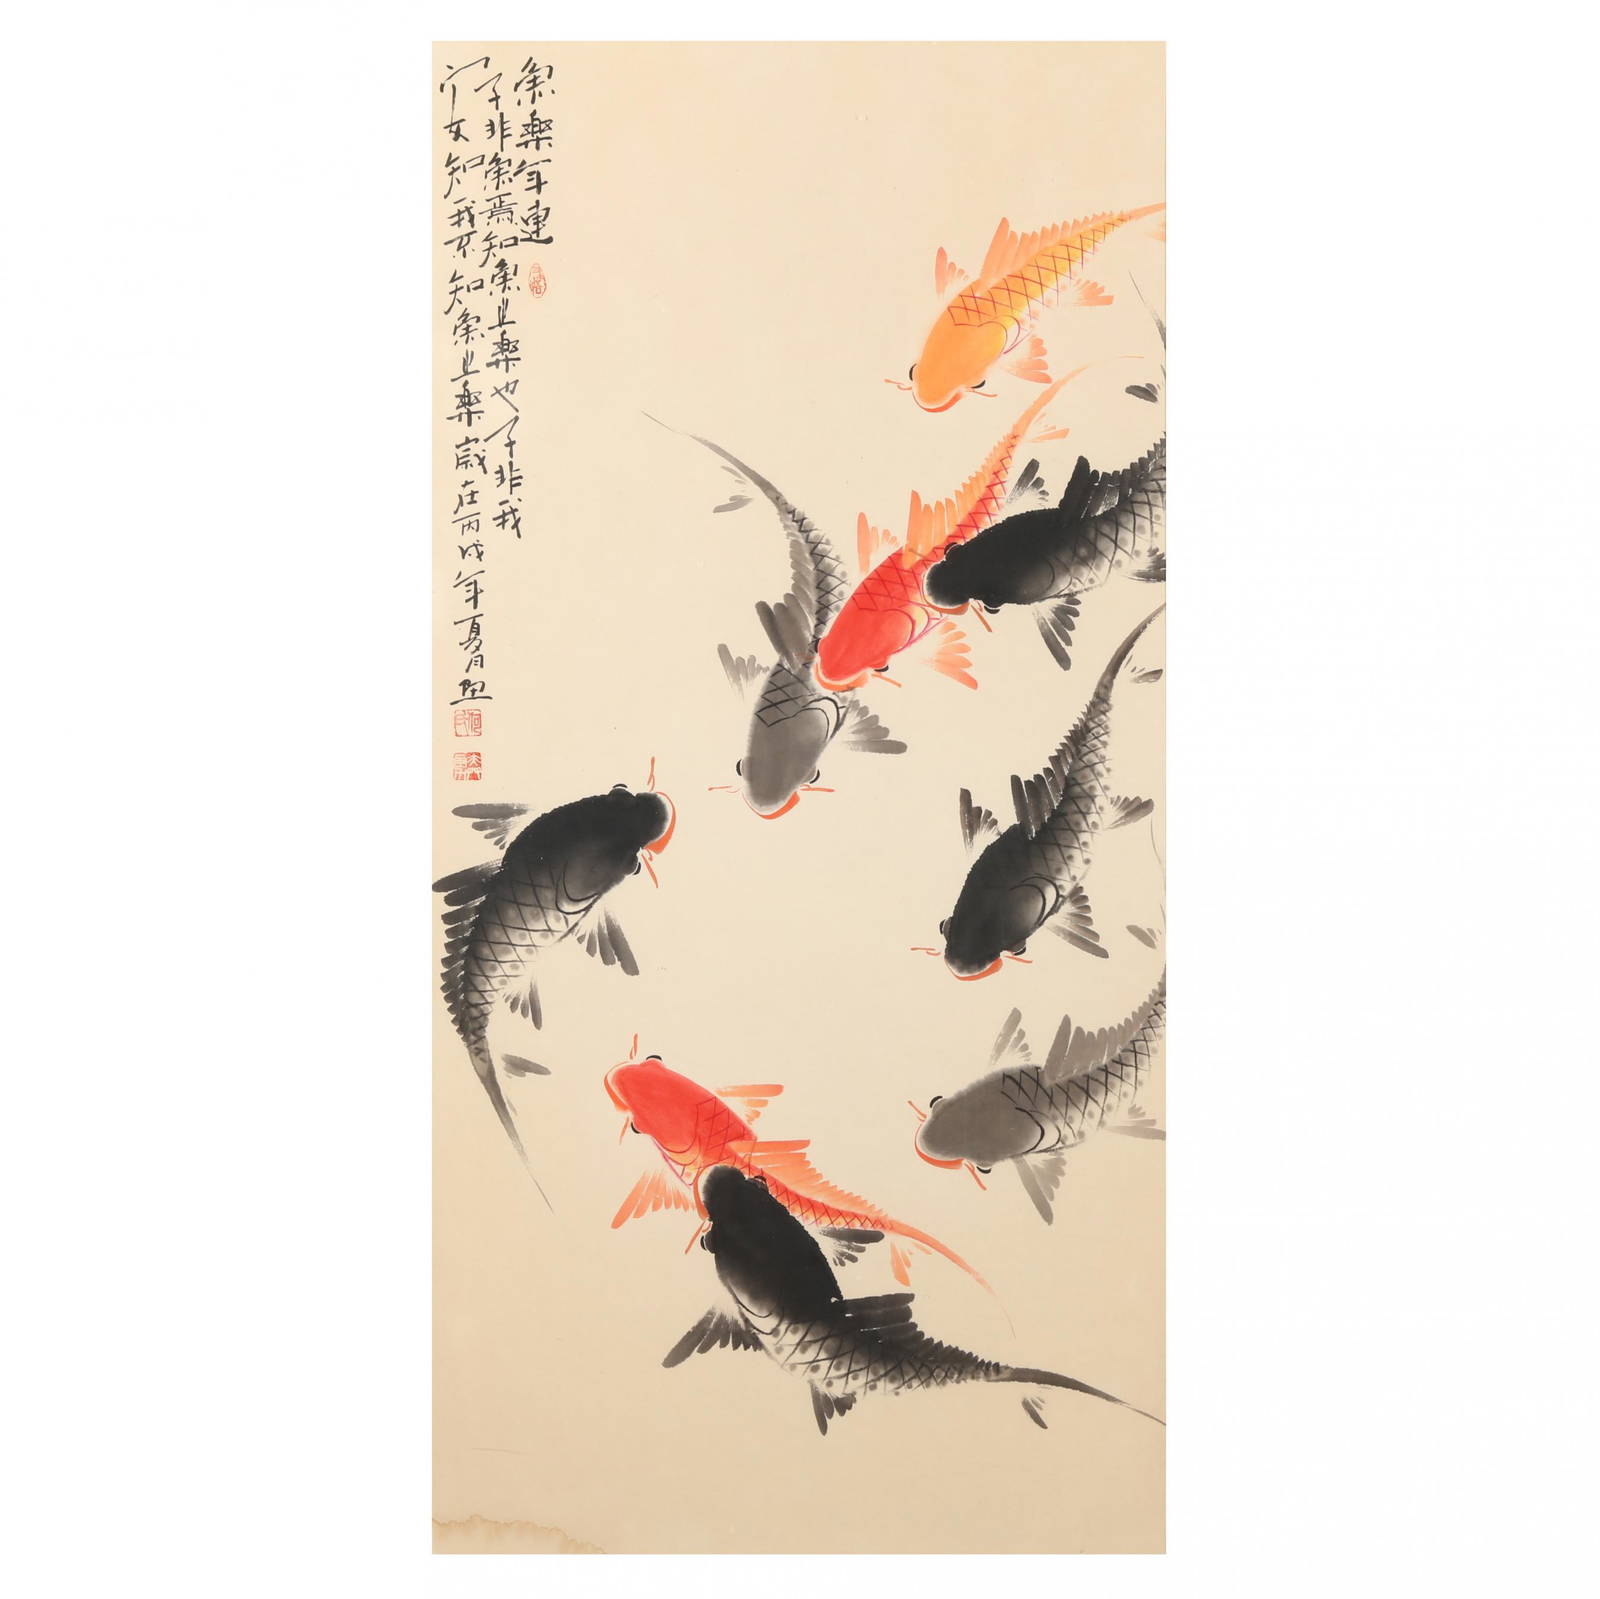 魚樂年連
子非魚焉知魚之樂也子非我
安知我不知魚之樂歲在丙戌年夏月